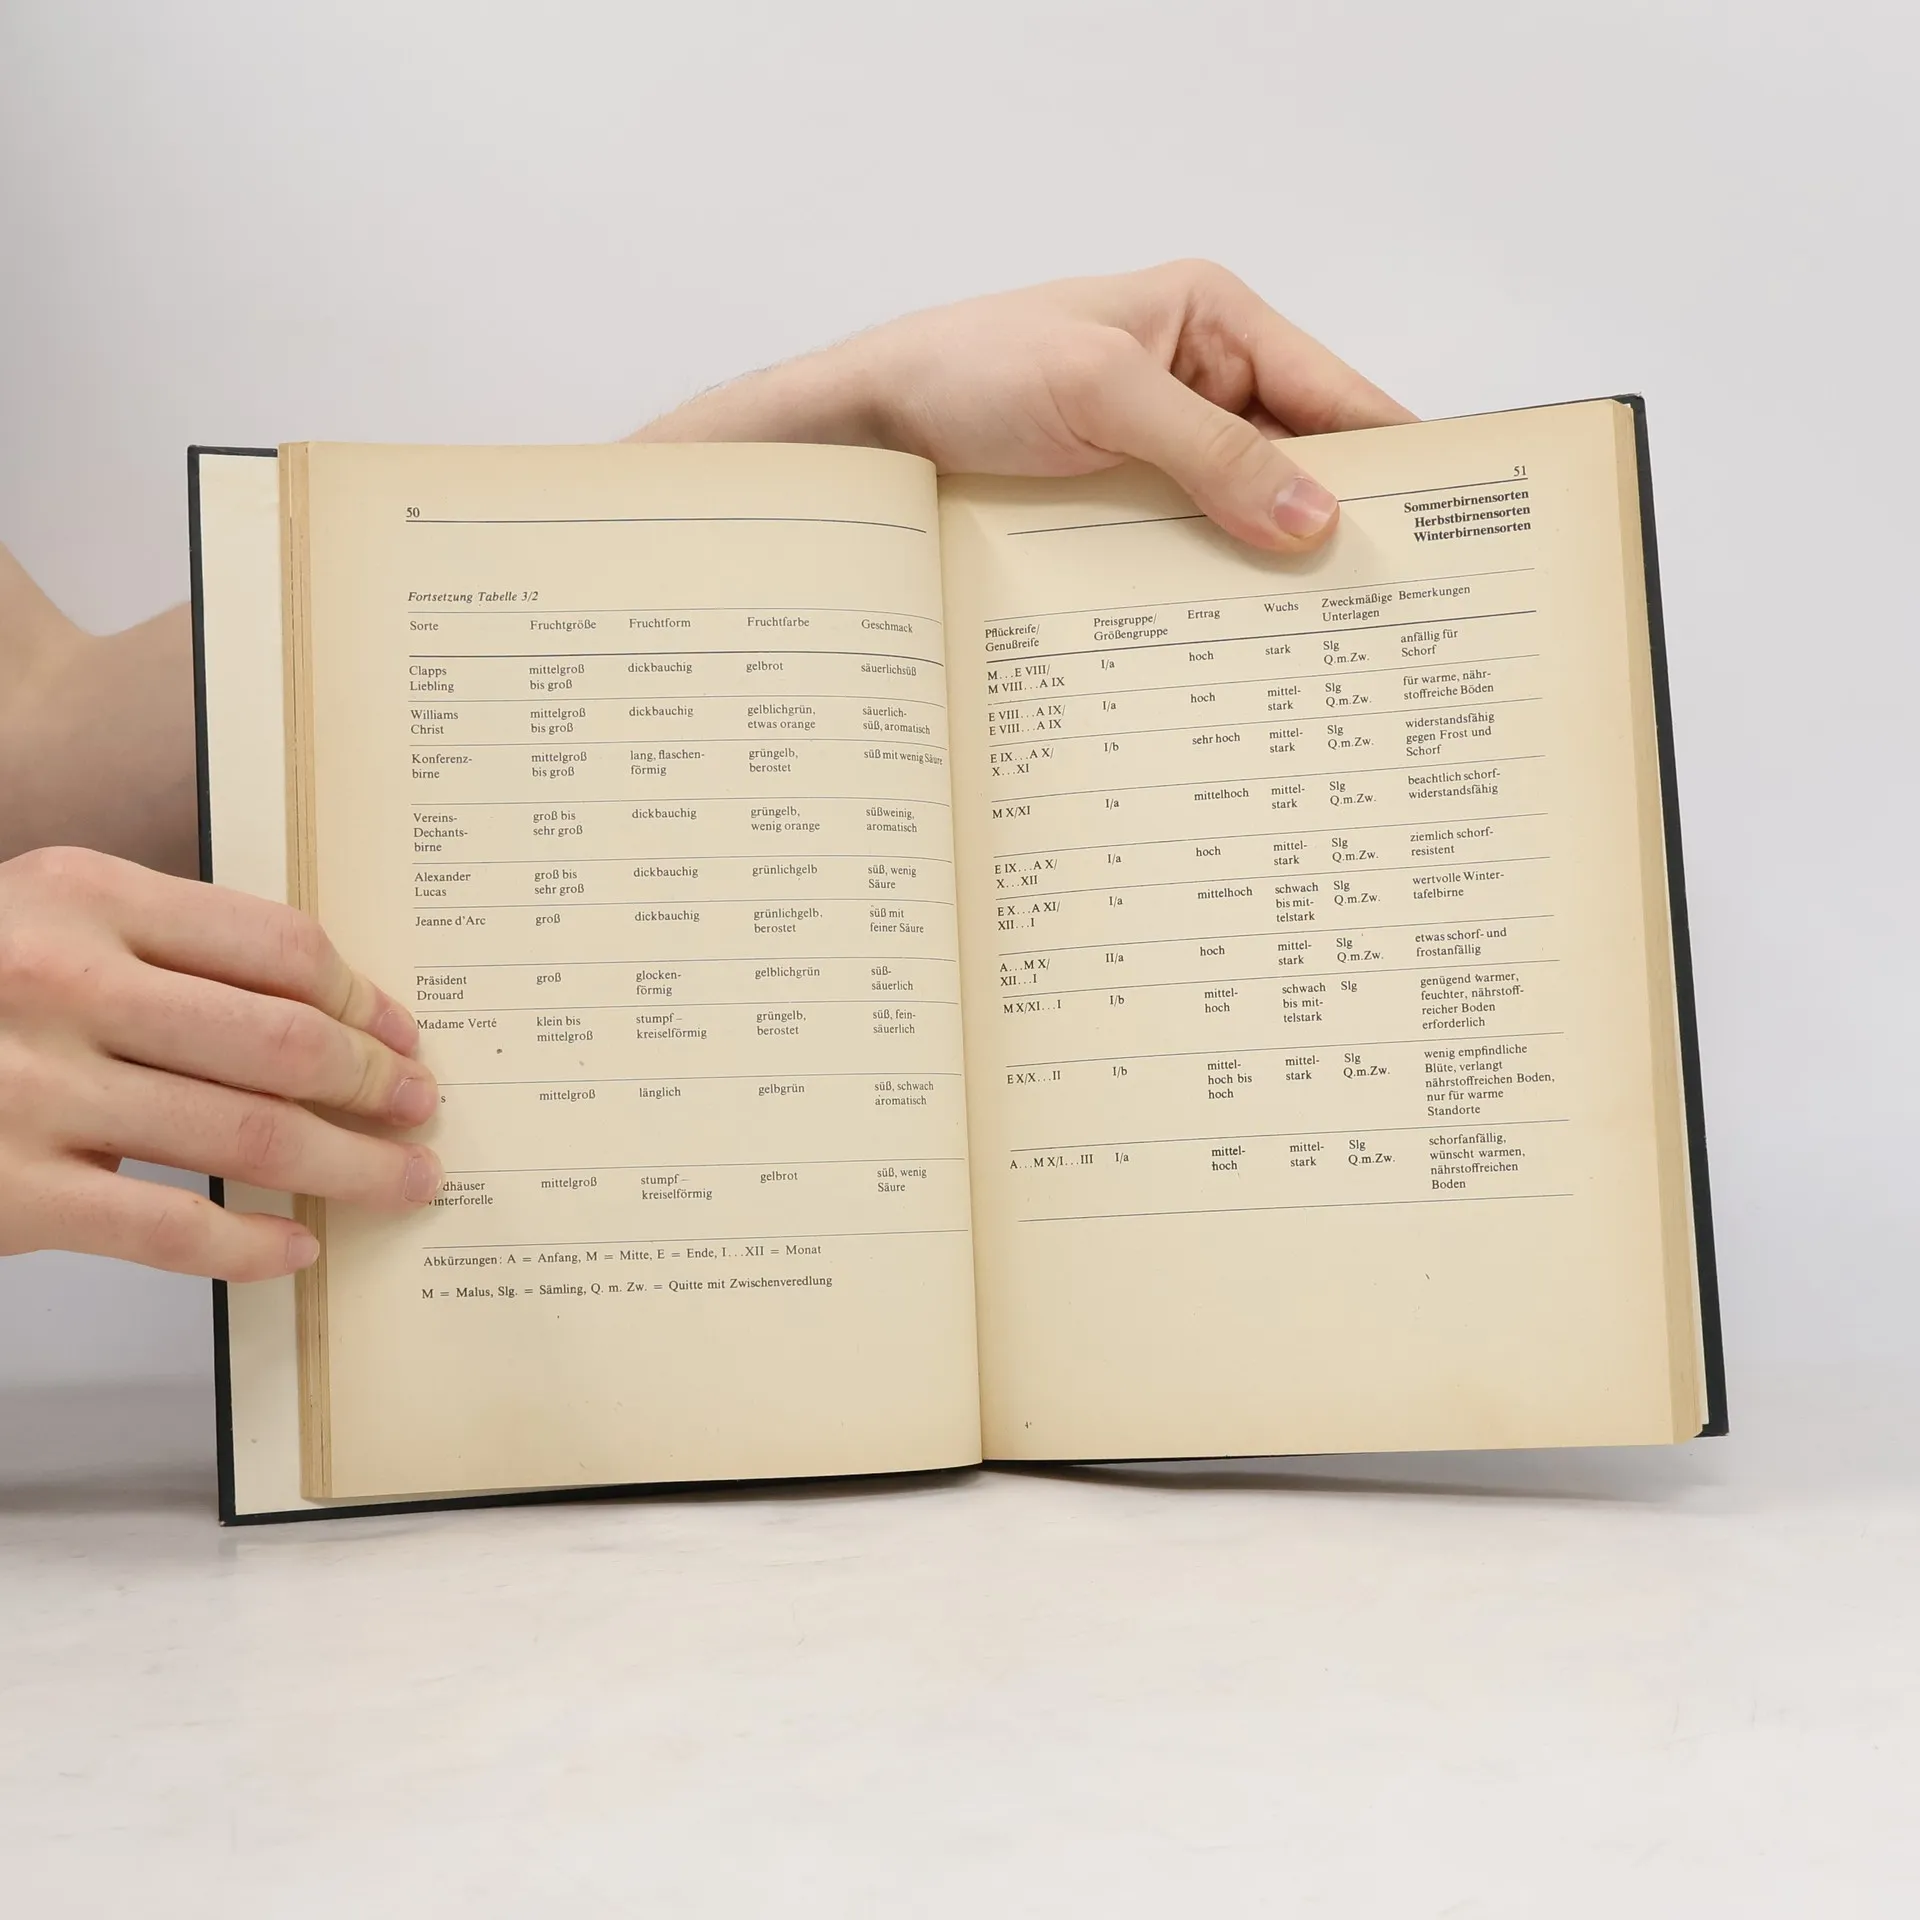 50
Fortsetzung Tabelle 3/2
Sorte Fruchtgröße Fruchtform Fruchtfarbe Geschmack
Clapps mittelgroß dickbauchig gelbrot säuerlichsüß
Liebling bis groß
Williams mittelgroß dickbauchig gelblichgrün, säuerlich-
Christ bis groß etwas orange süß, aromatisch
Konferenz- mittelgroß lang, flaschen- grüngelb, süß mit wenig Säure
birne bis groß förmig berostet
Vereins- groß bis dickbauchig grüngelb, süßweinig,
Dechants- sehr groß wenig orange aromatisch
birne
Alexander groß bis dickbauchig grünlichgelb süß, wenig
Lucas sehr groß Säure
Jeanne d'Arc groß dickbauchig grünlichgelb, süß mit
berostet feiner Säure
Präsident groß glocken- gelblichgrün süß-
Drouard förmig säuerlich
Madame Verté klein bis stumpf – grüngelb, süß, fein-
mittelgroß kreiselförmig berostet säuerlich
s mittelgroß länglich gelbgrün süß, schwach
aromatisch
dhäuser mittelgroß stumpf – gelbrot süß, wenig
interforelle kreiselförmig Säure
Abkürzungen: A = Anfang, M = Mitte, E = Ende, I...XII = Monat
M = Malus, Slg. = Sämling, Q. m. Zw. = Quitte mit Zwischenveredlung
51
Sommerbirnensorten
Herbstbirnensorten
Winterbirnensorten
Pflückreife/ Preisgruppe/ Ertrag Wuchs Zweckmäßige Bemerkungen
Genußreife Größengruppe Unterlagen
M...E VIII/ I/a hoch stark Slg anfällig für
M VIII...A IX Q.m.Zw. Schorf
E VIII...A IX/ I/a hoch mittel- Slg für warme, nähr-
E VIII...A IX stark Q.m.Zw. stoffreiche Böden
E IX...A X/ I/b sehr hoch mittel- Slg widerstandsfähig
X...XI stark Q.m.Zw. gegen Frost und
Schorf
M X/XI I/a mittelhoch mittel- Slg beachtlich schorf-
stark Q.m.Zw. widerstandsfähig
E IX...A X/ I/a hoch mittel- Slg ziemlich schorf-
X...XII stark Q.m.Zw. resistent
E X...A XI/ I/a mittelhoch schwach Slg wertvolle Winter-
XII...I bis mit- Q.m.Zw. tafelbirne
telstark
A...M X/ II/a hoch mittel- Slg etwas schorf- und
XII...I stark Q.m.Zw. frostanfällig
M X/XI...I I/b mittel- schwach Slg genügend warmer,
hoch bis mit- feuchter, nährstoff-
telstark reicher Boden
erforderlich
E X/X...II I/b mittel- mittel- Slg wenig empfindliche
hoch bis stark Q.m.Zw. Blüte, verlangt
hoch nährstoffreichen Boden,
nur für warme
Standorte
A...M X/I...III I/a mittel- mittel- Slg schorfanfällig,
hoch stark Q.m.Zw. wünscht warmen,
nährstoffreichen
Boden
4*